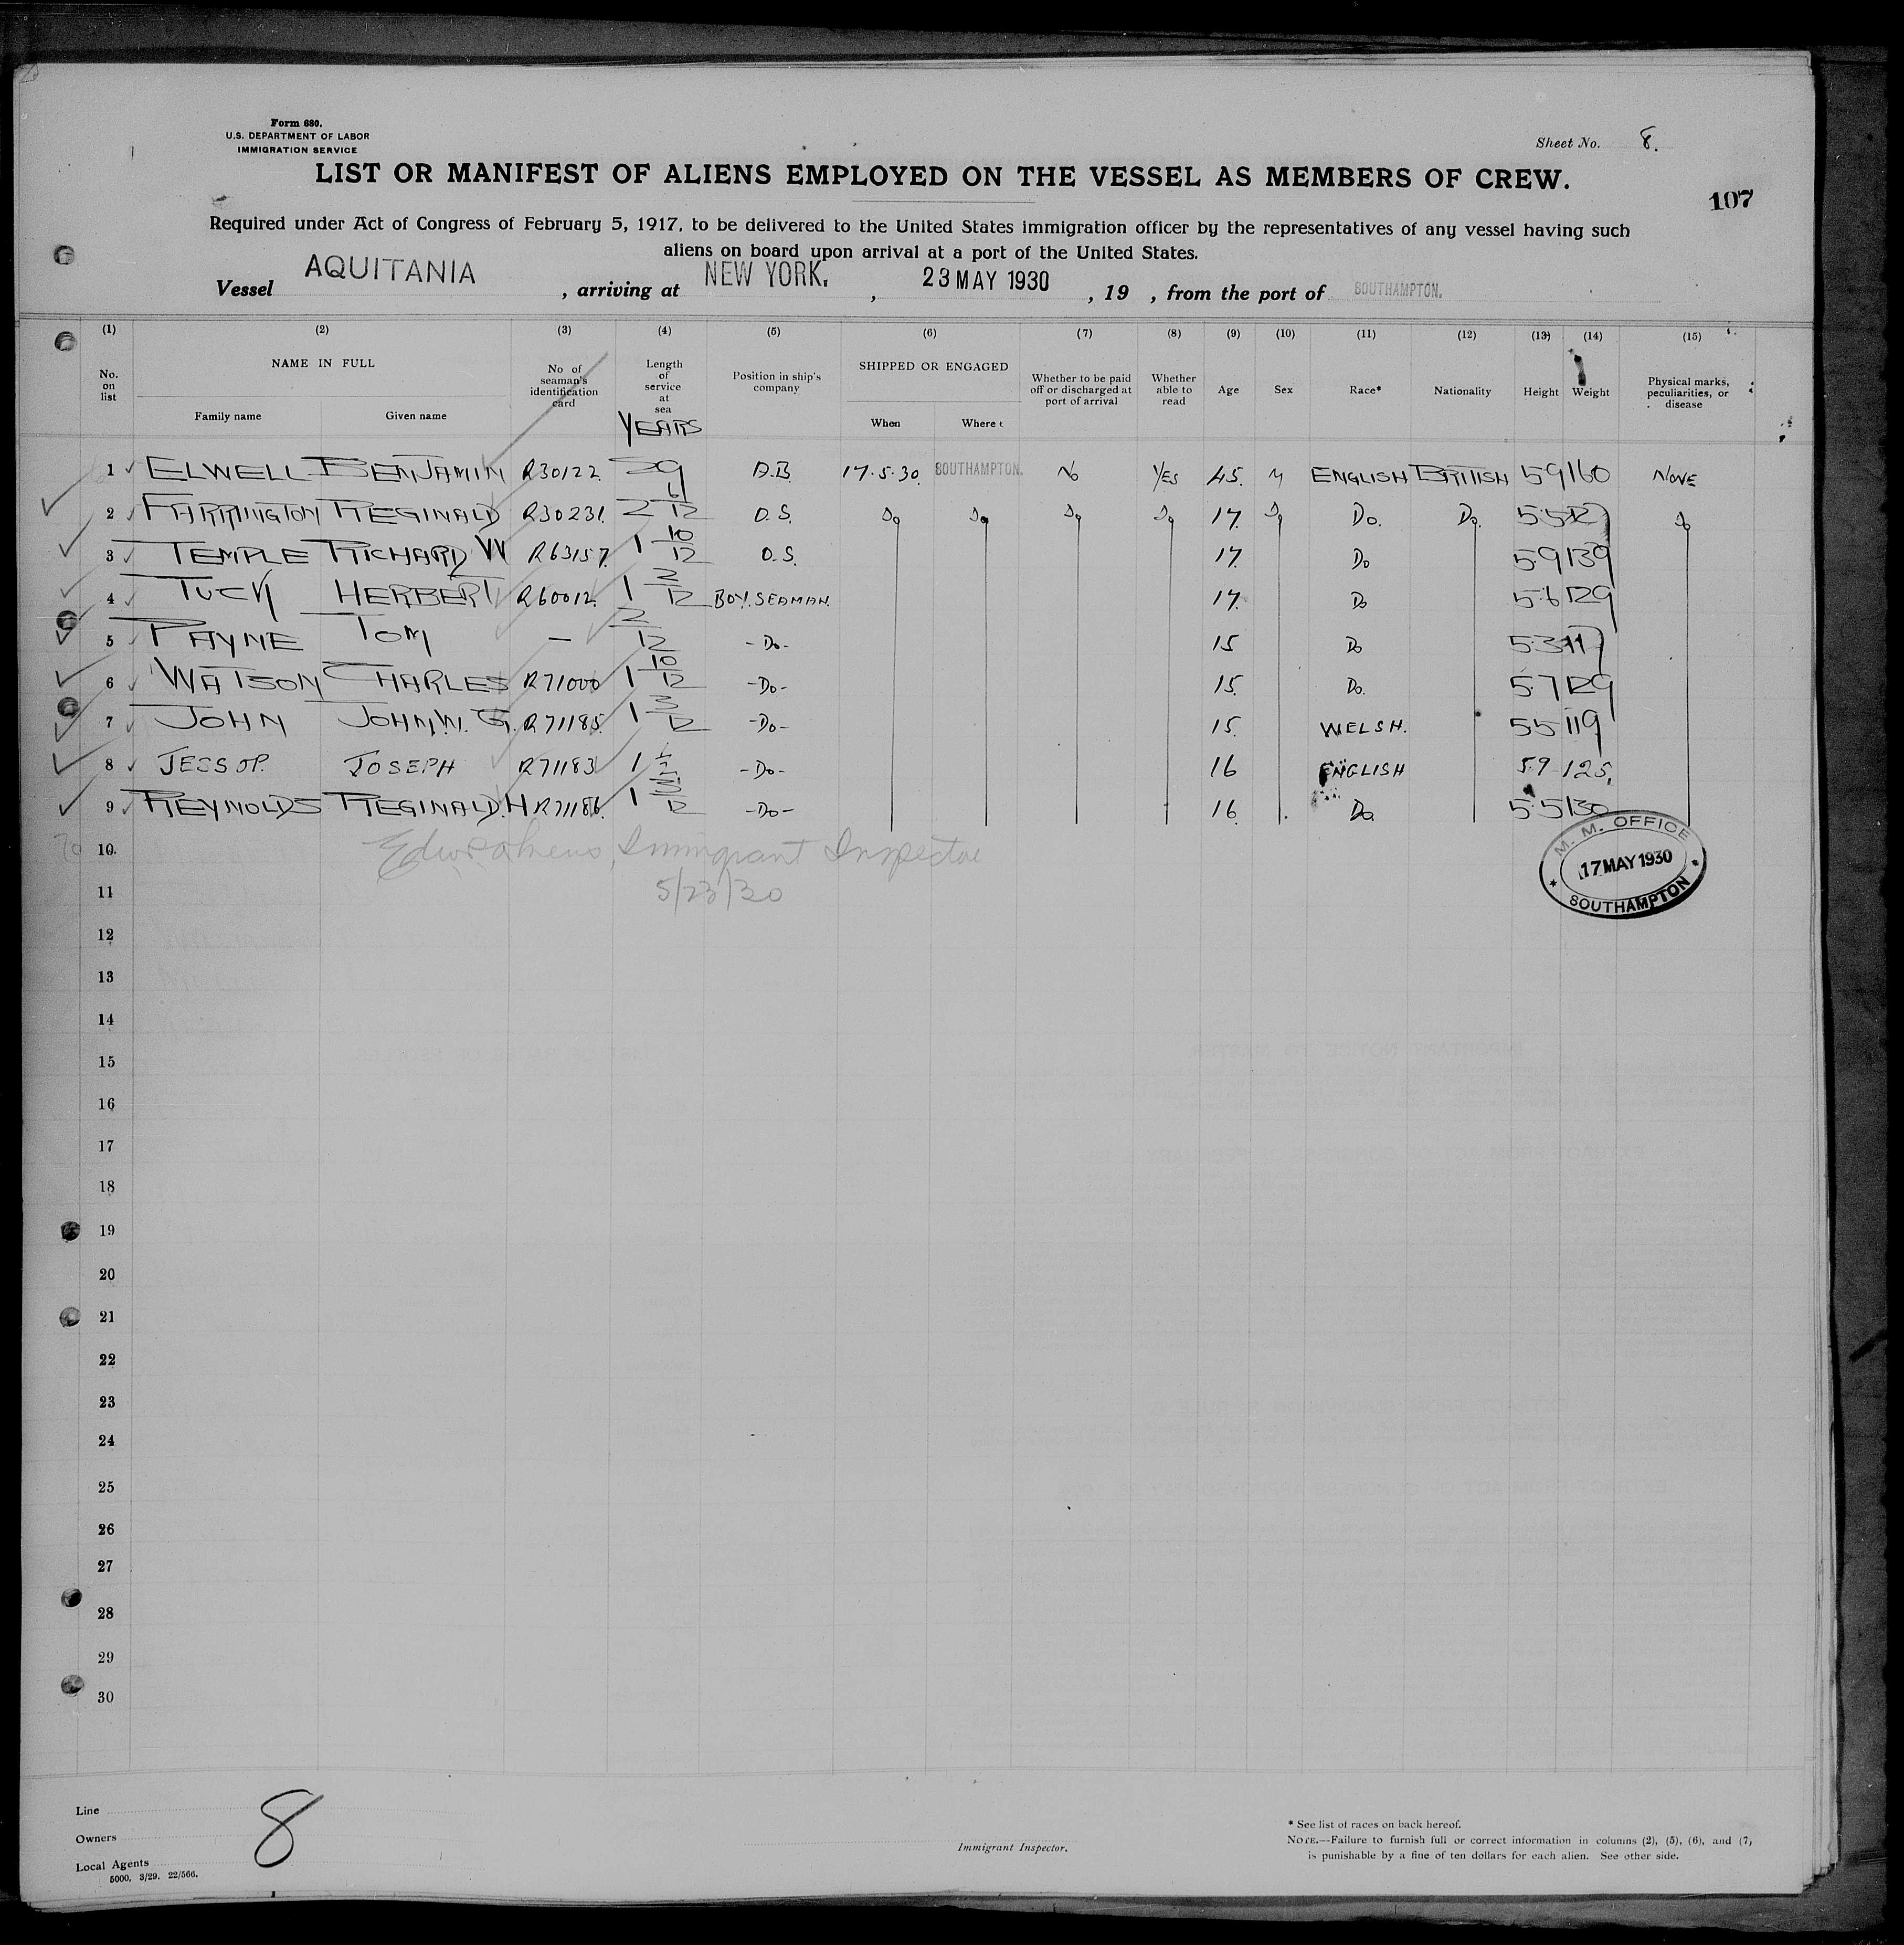 Form 680.
U.S. DEPARTMENT OF LABOR
IMMIGRATION SERVICE
Sheet No. 8.
LIST OR MANIFEST OF ALIENS EMPLOYED ON THE VESSEL AS MEMBERS OF CREW.
107
Required under Act of Congress of February 5, 1917, to be delivered to the United States immigration officer by the representatives of any vessel having such
aliens on board upon arrival at a port of the United States.
Vessel AQUITANIA , arriving at NEW YORK. , 23 MAY 1930 , 19 , from the port of SOUTHAMPTON.
(1) (2) (3) (4) (5) (6) (7) (8) (9) (10) (11) (12) (13) (14) (15)
No. on list
NAME IN FULL
Family name Given name
No of seaman's identification card
Length of service at sea
YEARS
Position in ship's company
SHIPPED OR ENGAGED
When Where
Whether to be paid off or discharged at port of arrival
Whether able to read
Age Sex Race* Nationality Height Weight
Physical marks, peculiarities, or disease
1 ELWELL BENJAMIN R30122. 29 A.B. 17.5.30. SOUTHAMPTON. No YES 45. M ENGLISH BRITISH 5.9 160 NONE
2 FARRINGTON REGINALD R30231. 2 6/12 O.S. Do Do Do Do 17. Do Do. Do. 5.5 Do
3 TEMPLE RICHARD W R63157. 1 10/12 O.S. 17. Do 5.9 139
4 TUCK HERBERT R60012. 1 2/12 BOY. SEAMAN. 17. Do 5.6 129
5 PAYNE TOM — 2/12 -Do- 15 Do 5.3 117
6 WATSON CHARLES R71000 1 10/12 -Do- 15. Do. 5.7 129
7 JOHN JOHN.W. G. R71185. 1 3/12 -Do- 15. WELSH. 5.5 119
8 JESSOP. JOSEPH R71183 1 -Do- 16 ENGLISH 5.9 125.
9 REYNOLDS REGINALD.H R71186. 1 3/12 -Do- 16. Do. 5.5 130
10. Immigrant Inspector
11 5/23/30
M. M. OFFICE
17 MAY 1930
SOUTHAMPTON
12
13
14
15
16
17
18
19
20
21
22
23
24
25
26
27
28
29
30
Line
Owners
Local Agents
5000, 3/29. 22/566.
8
Immigrant Inspector.
* See list of races on back hereof.
NOTE.—Failure to furnish full or correct information in columns (2), (5), (6), and (7,
is punishable by a fine of ten dollars for each alien. See other side.